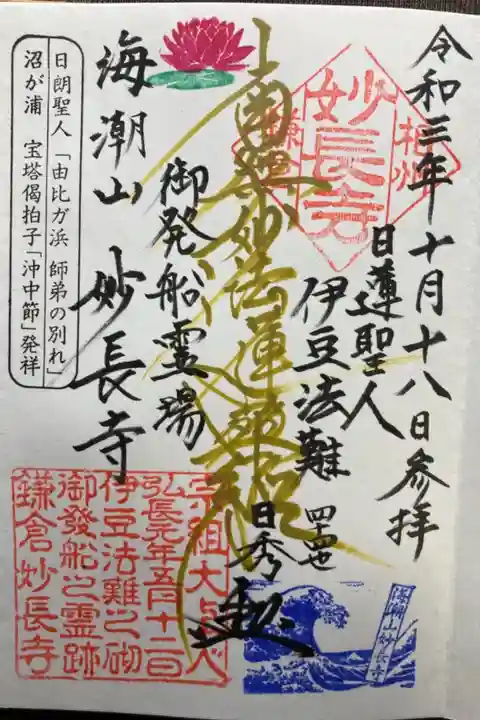 令和三年十月十八日参拝
相州
妙長寺
鎌倉
日蓮聖人
伊豆法難
四十四世
日秀
南無妙法蓮華経
御発船霊場
海潮山 妙長寺
日朗聖人 「由比ガ浜 師弟の別れ」
沼が浦 宝塔偈拍子「沖中節」発祥
宗祖大士
弘長元年五月十二日
伊豆法難之砌
御發船之霊跡
鎌倉妙長寺
海潮山妙長寺